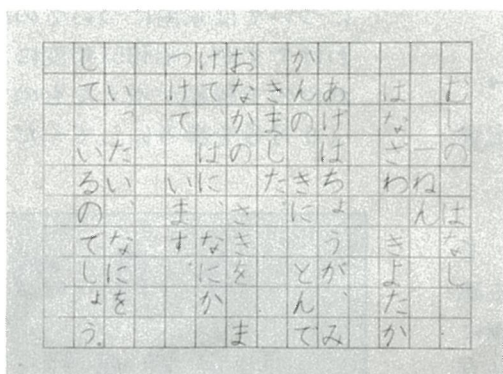 むしの はなし
一ねん
はなさわ きよたか
あげはちょうが、み
かんのきに とんで
きました
おなかの さきを ま
げて はに、なにか
つけて います。
いったい、なにを
しているのでしょう。